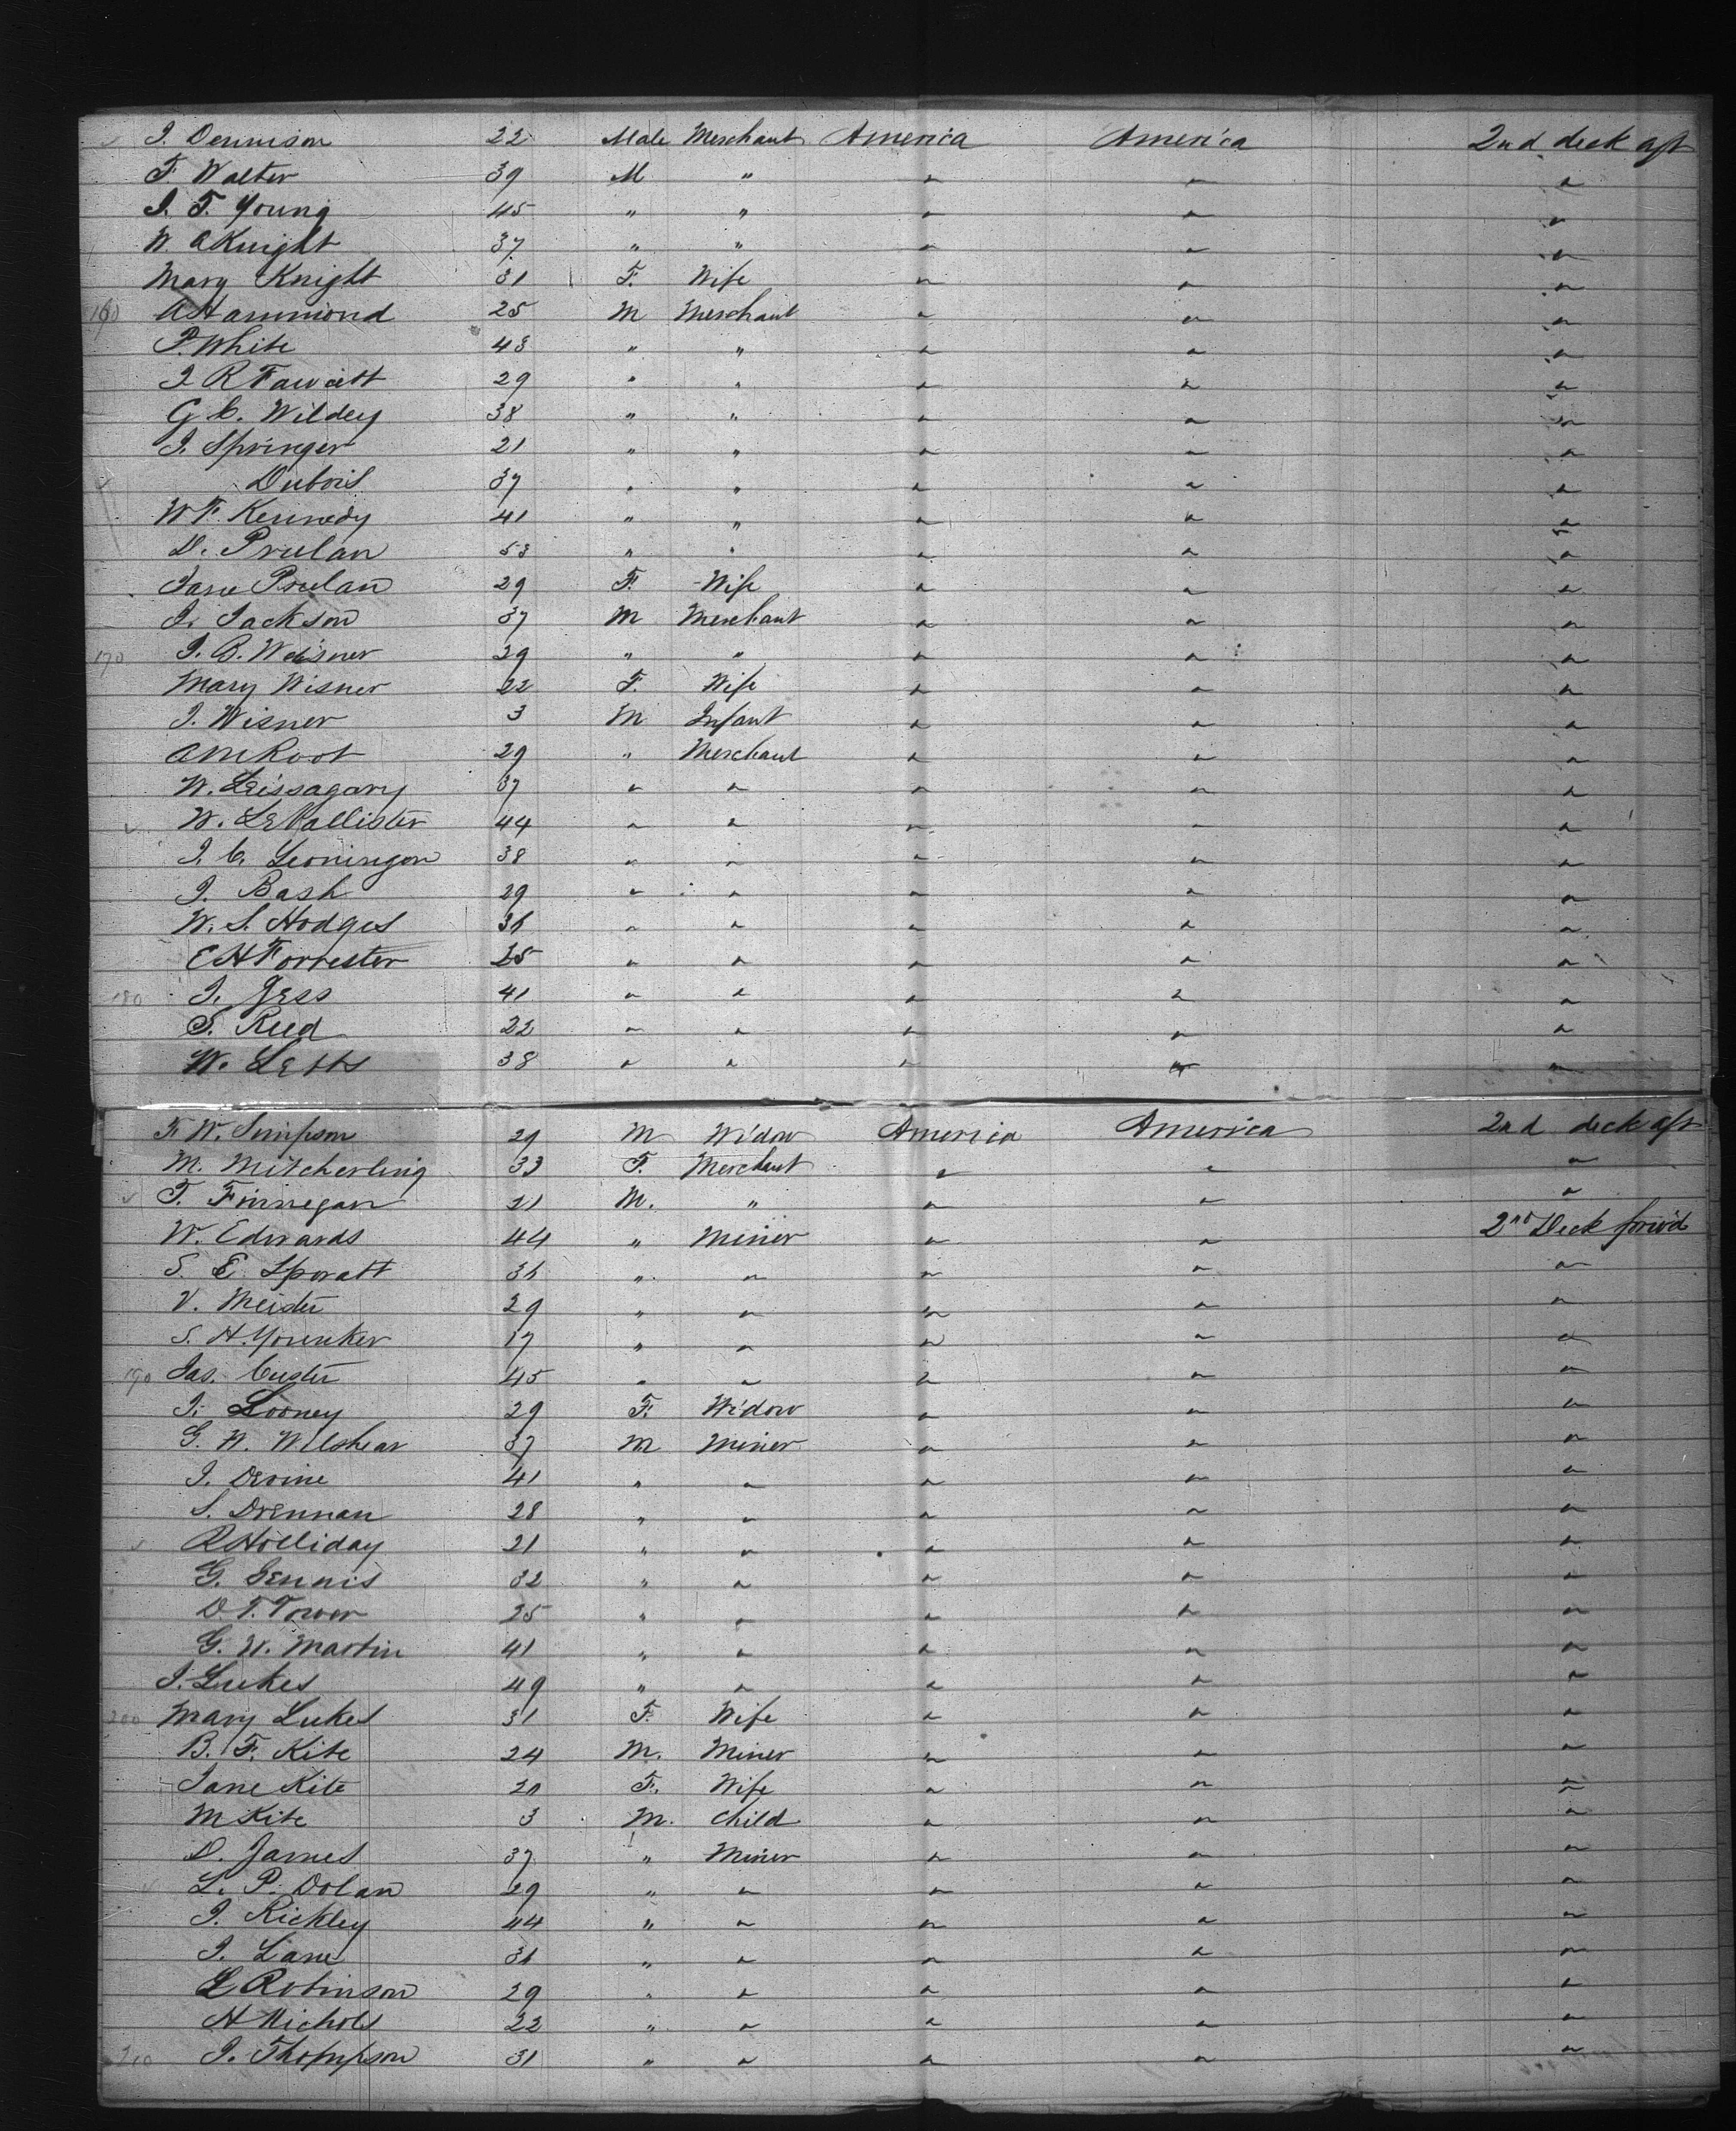 J. Dennison 22 Male Merchant America America 2nd deck aft
F. Walter 39 M " " " "
J. F. Young 45 " " " " "
W. A Knight 37 " " " " "
Mary Knight 31 F. Wife " " "
160 A Hammond 25 M Merchant " " "
P. White 43 " " " " "
J. R Fawcett 29 " " " " "
G C. Wildey 38 " " " " "
J. Springer 21 " " " " "
Dubois 37 " " " " "
W F. Kennedy 41 " " " " "
D. Prulan 53 " " " " "
Jane Prulan 29 F. Wife " " "
J. Jackson 37 M Merchant " " "
170 J. B. Weisner 29 " " " " "
Mary Wisner 22 F. Wife " " "
J. Wisner 3 M Infant " " "
A M Root 29 " Merchant " " "
W. Leissagary 37 " " " " "
W. LeVallister 44 " " " " "
J. C. 38 " " " " "
J. Bash 29 " " " " "
W. S. Hodges 36 " " " " "
E H Forrester 25 " " " " "
180 J. Jess 41 " " " " "
S. Reed 22 " " " " "
W. Letts 38 " " " " "
F. W. Simpson 29 M Widow America America 2nd deck aft
M. Mitcherling 33 F. Merchant " " "
T. Finnegan 21 M. " " " "
W. Edwards 44 " Miner " " 2nd Deck forw'd
S. E. Sporatt 36 " " " " "
V. Meister 29 " " " " "
S. H. Younker 17 " " " " "
190 Jas. Custer 45 " " " " "
J. Looney 29 F. Widow " " "
G. W. Wilshear 37 M Miner " " "
J. Devine 41 " " " " "
S. Drennan 28 " " " " "
R Holliday 21 " " " " "
G. Gennis 32 " " " " "
D. T. Tower 25 " " " " "
G. W. Martin 41 " " " " "
J. Lukes 49 " " " " "
200 Mary Lukes 31 F. Wife " " "
B. F. Kite 24 M. Miner " " "
Jane Kite 20 F. Wife " " "
M Kite 3 M. Child " " "
D. James 37 " Miner " " "
L. P. Dolan 29 " " " " "
J. Rickley 44 " " " " "
J. Lane 36 " " " " "
L Robinson 29 " " " " "
H Nichols 22 " " " " "
210 J. Thompson 31 " " " " "